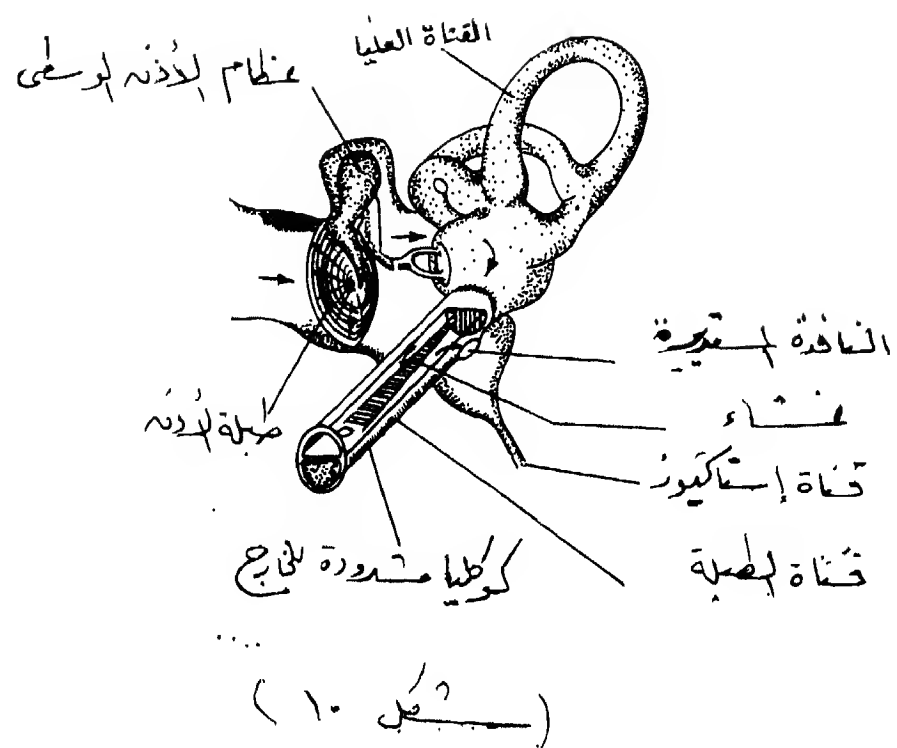 القناة العليا
عظام الأذن الوسطى
النافذة المستديرة
غشاء
طبلة الأذن
قناة إستاكيوز
قناة الطبلة
كوكليا مشدودة للخارج
....
(شكل ١٠)